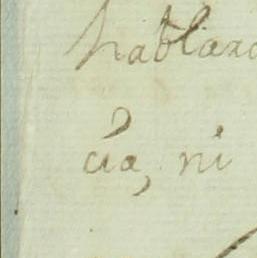 hablara
cia, ni